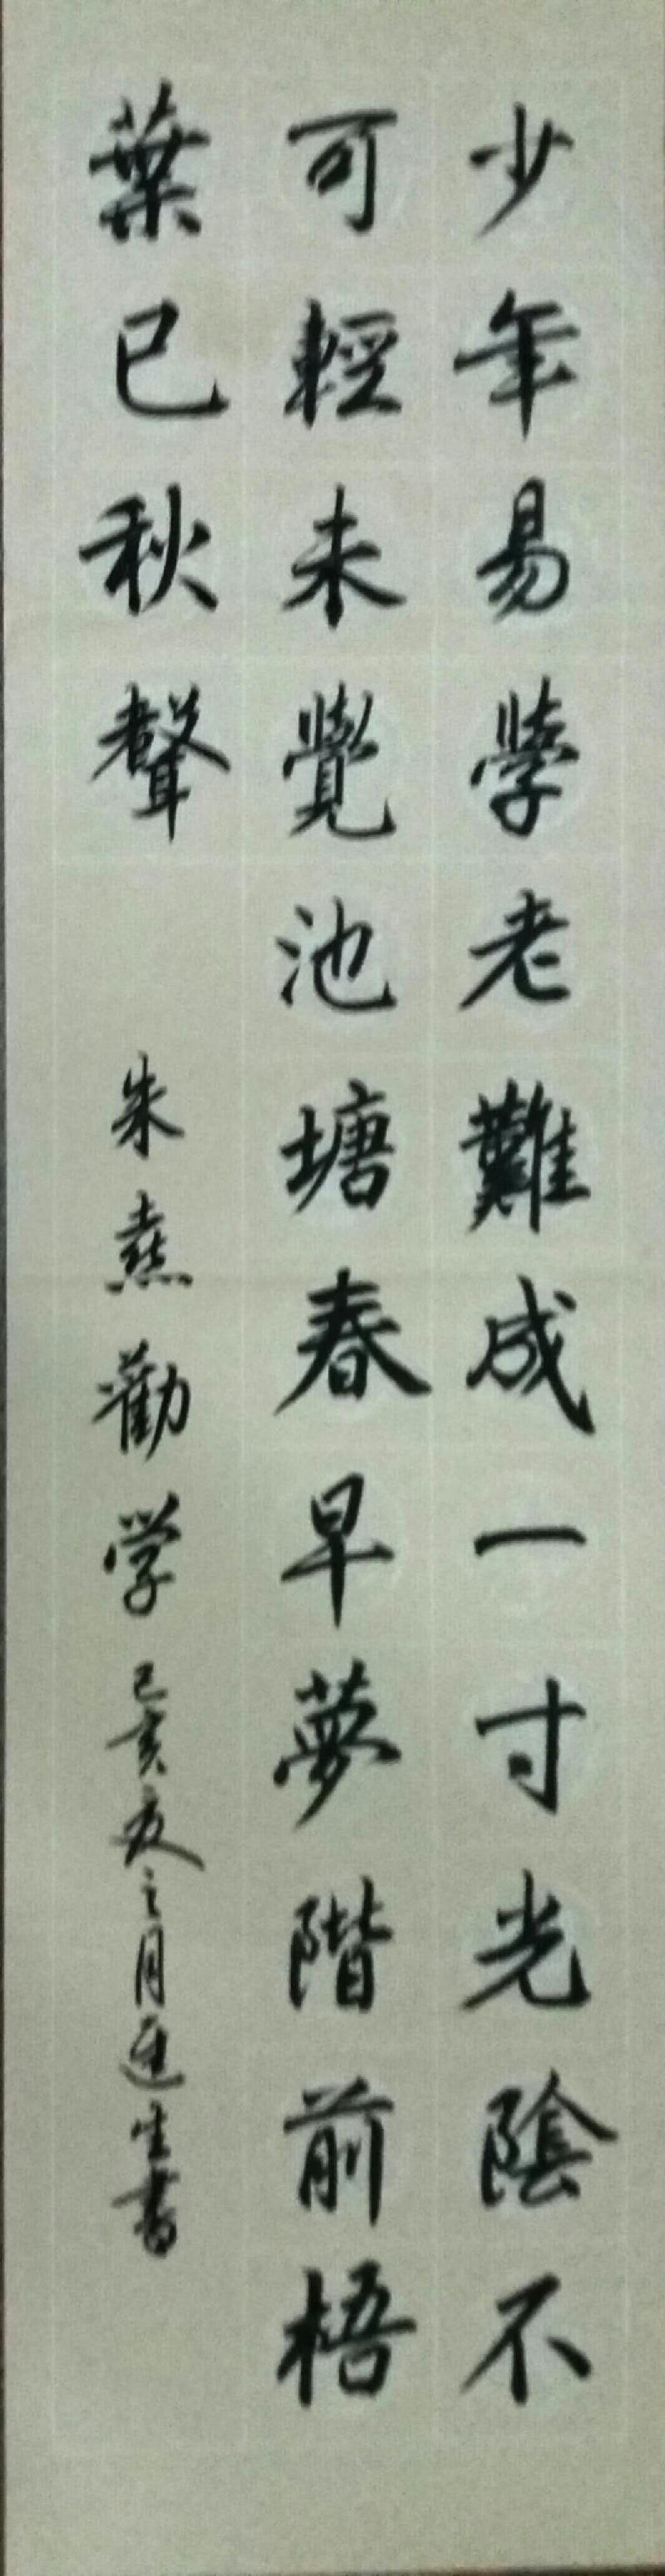 少年易學老難成一寸光陰不
可輕未覺池塘春早夢階前梧
葉已秋聲 朱熹勸学 己亥夏之月 生書